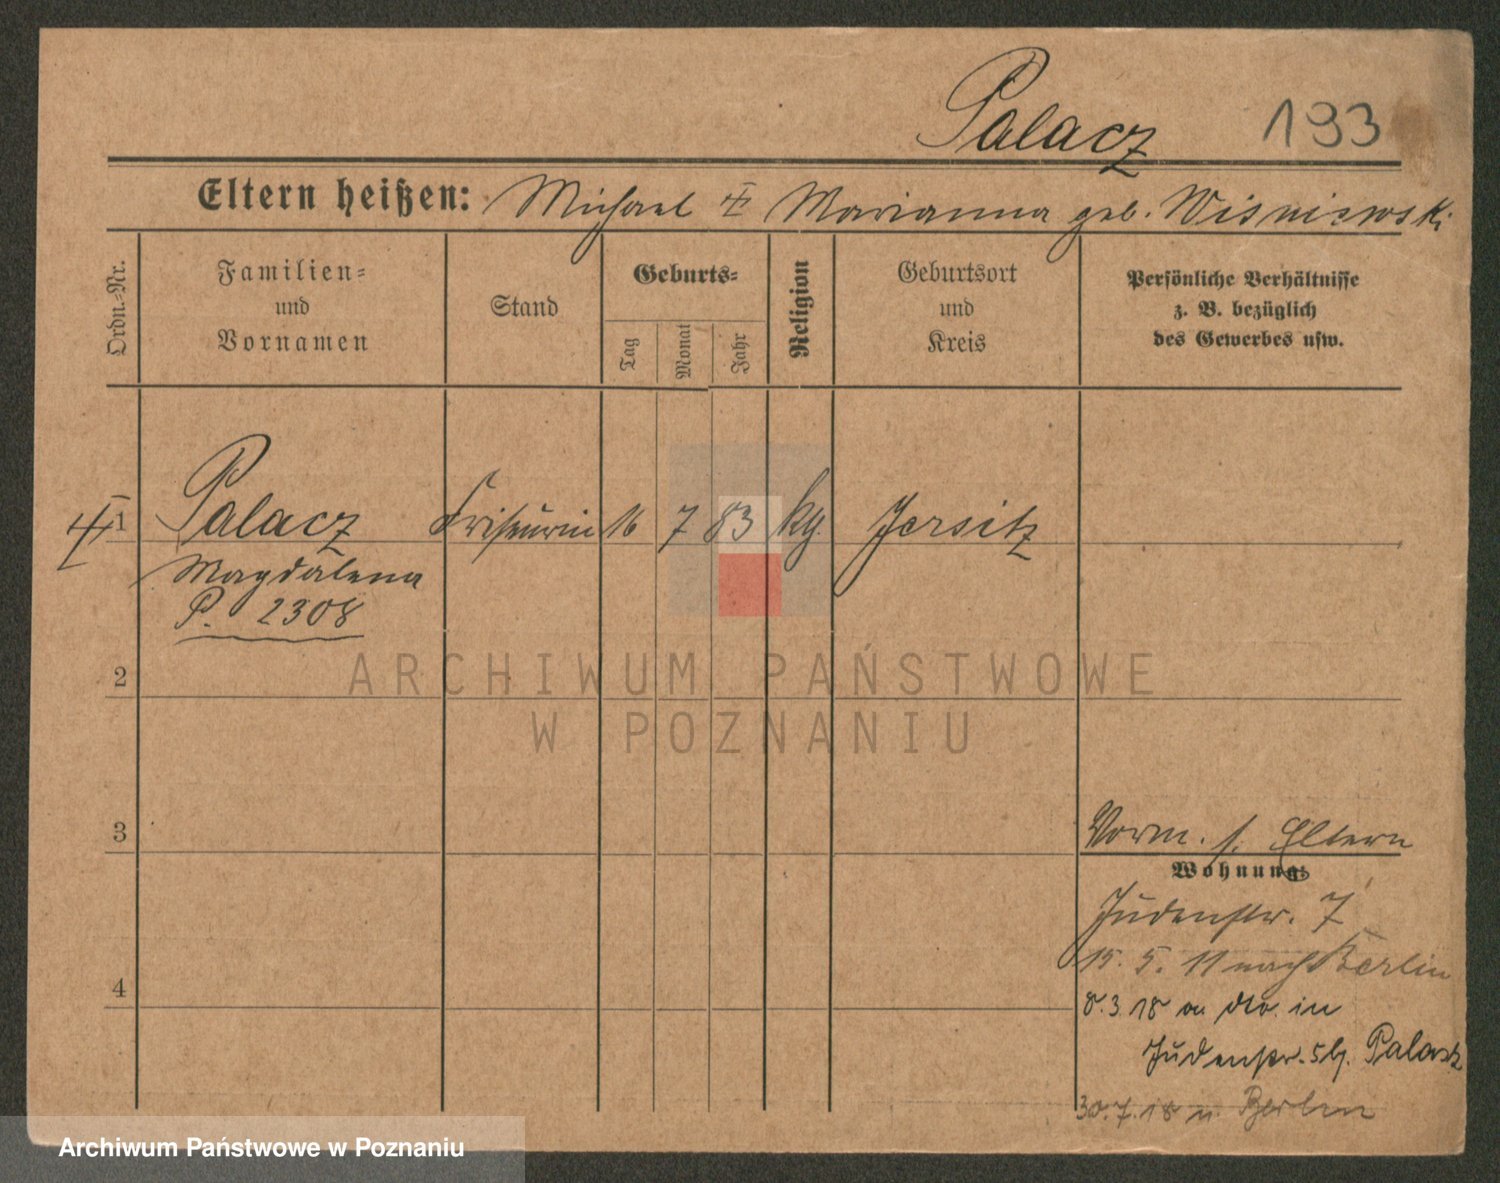 Palacz 193
Eltern heißen: Michael Marianna geb. Wisniewski
Ordn.-Nr.
Familien-
und
Vornamen
Stand
Geburts-
Tag
Monat
Jahr
Religion
Geburtsort
und
Kreis
Persönliche Verhältnisse
z. B. bezüglich
des Gewerbes usw.
1 Palacz Friseurin 16 7 83 kg. Jersitz
Magdalena
P. 2308
2
3
4
Vorm. s. Eltern
Wohnung:
Judenstr. 7
15. 5. 11 nach Berlin
8. 3. 18 in
Judenstr. 5 b. Palacz
30. 7. 18 n. Berlin
ARCHIWUM PAŃSTWOWE
W POZNANIU
Archiwum Państwowe w Poznaniu